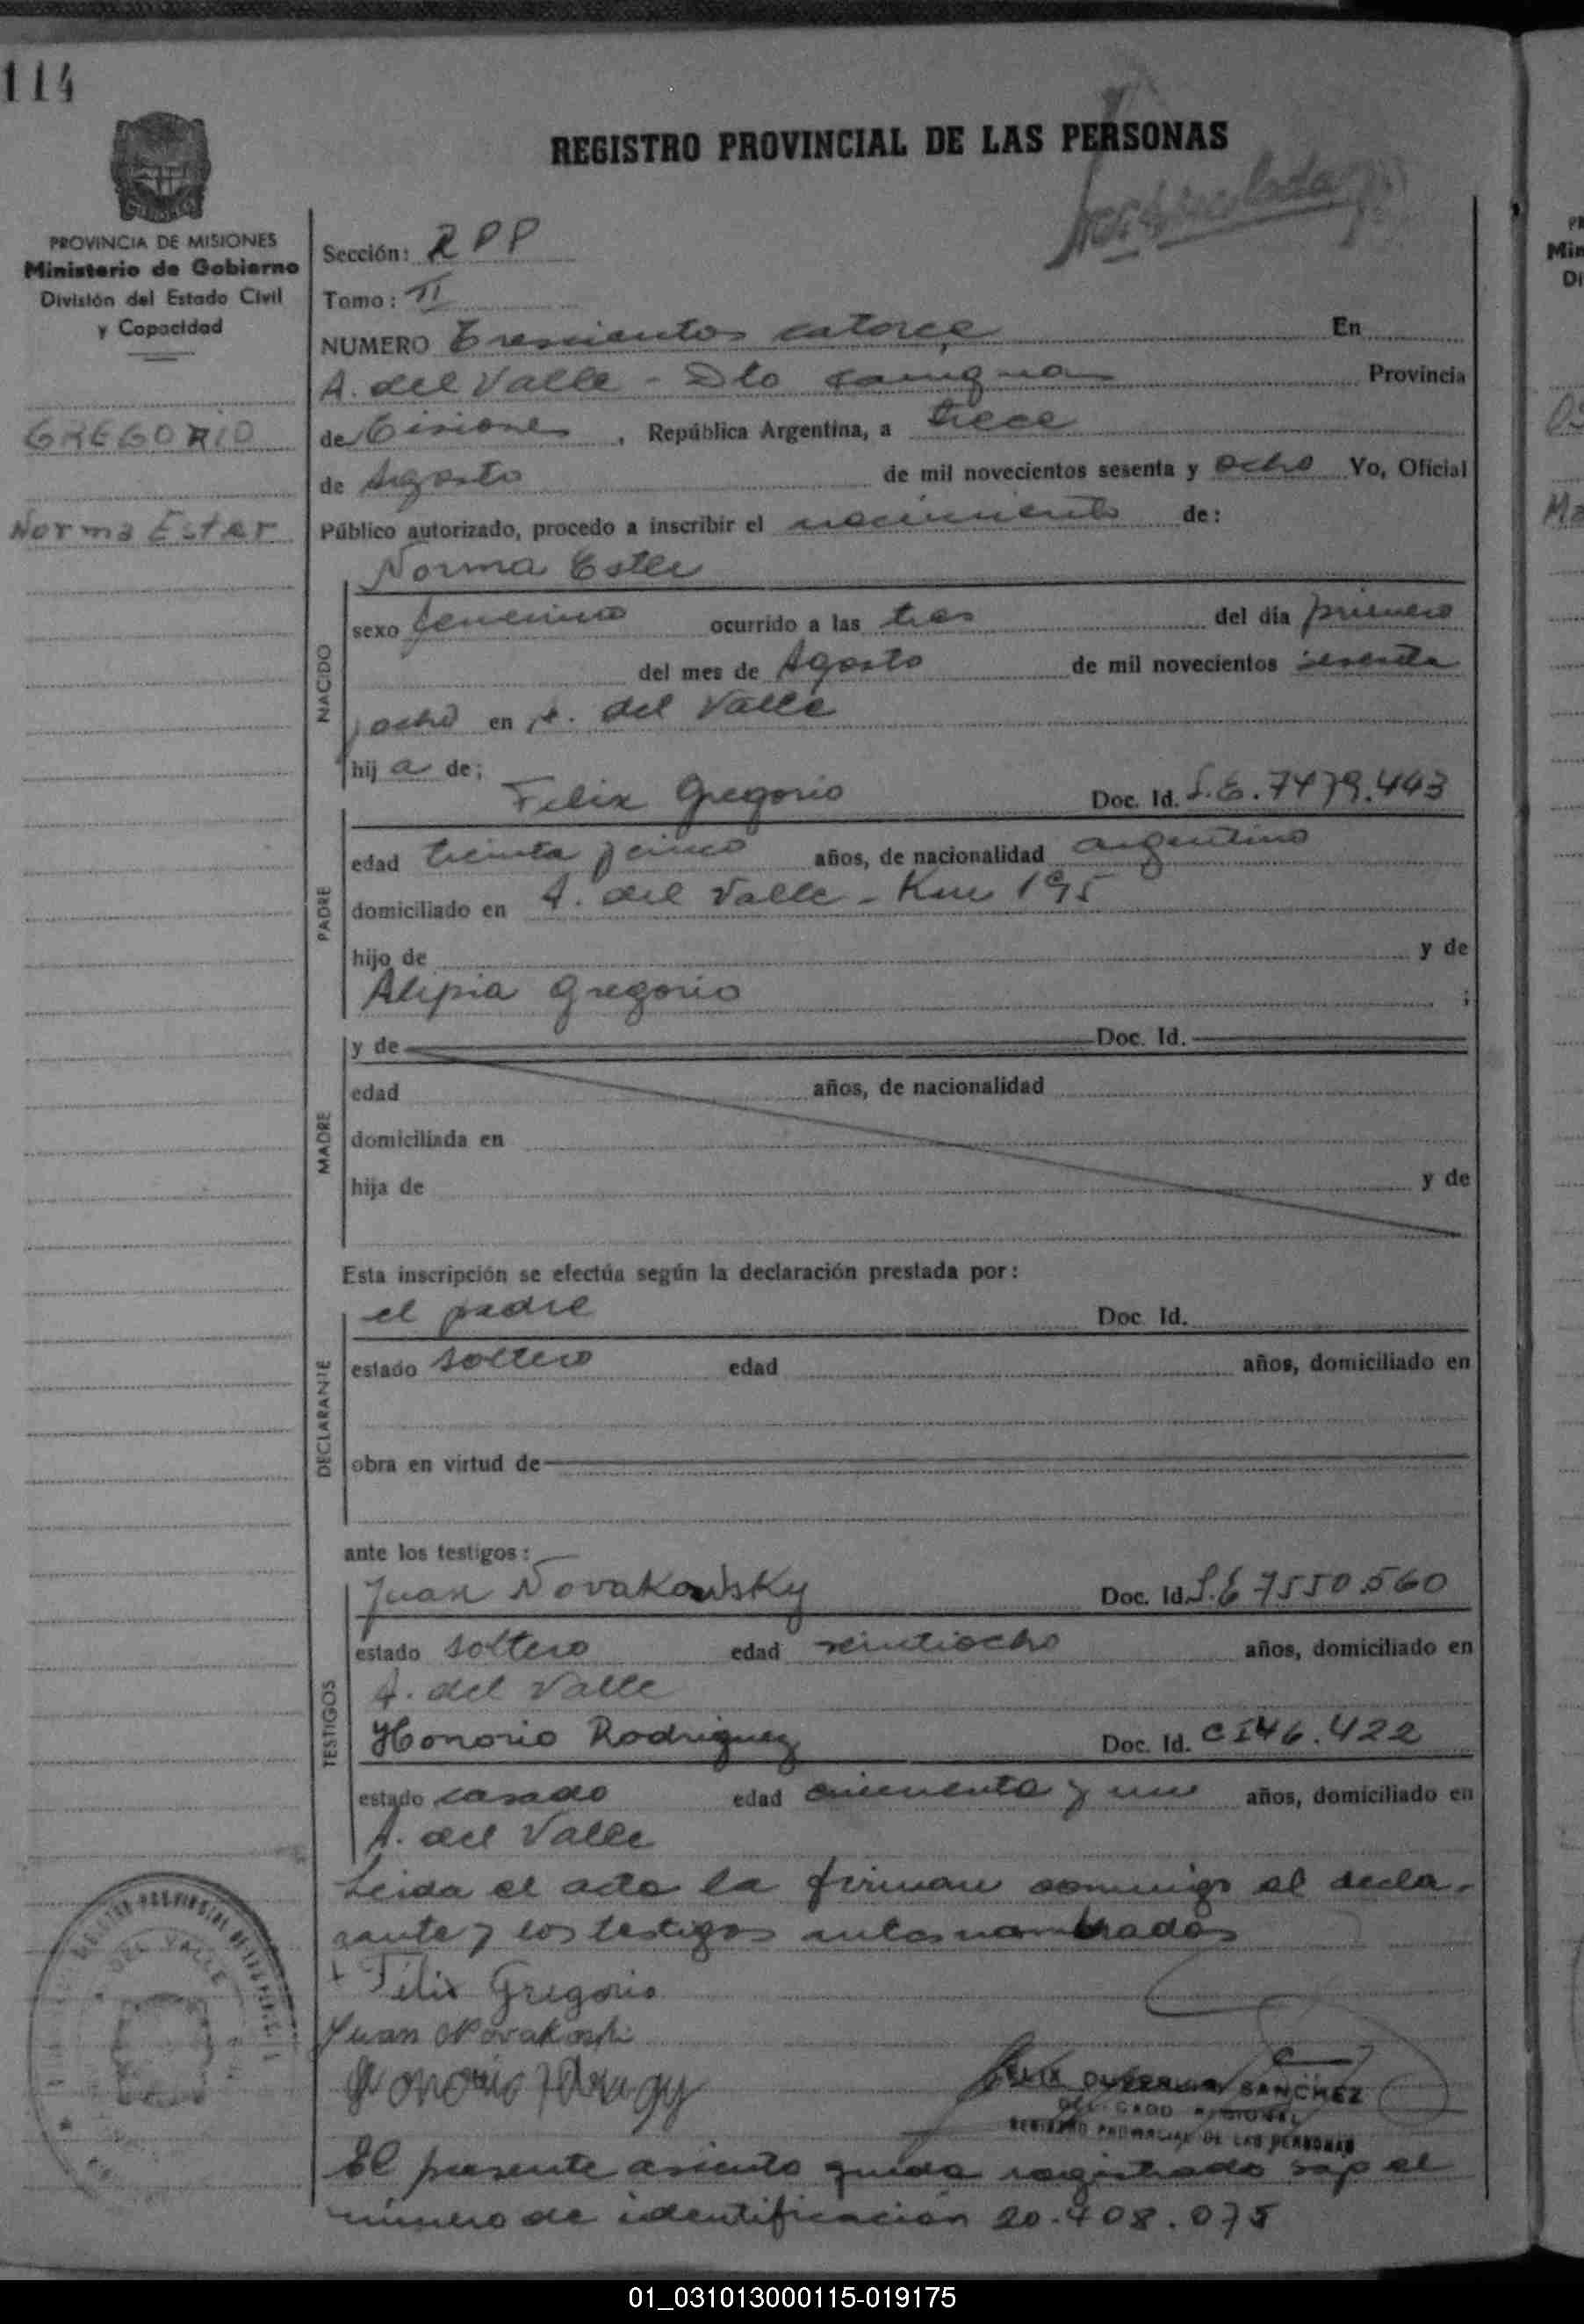 114
REGISTRO PROVINCIAL DE LAS PERSONAS
PROVINCIA DE MISIONES
Ministerio de Gobierno
División del Estado Civil
y Capacidad
GREGORIO
Norma Ester
Sección: RPP
Tomo: II
NUMERO Trescientos catorce En
A. del Valle - Dto Cainguas Provincia
de Misiones, República Argentina, a trece
de Agosto de mil novecientos sesenta y ocho Yo, Oficial
Público autorizado, procedo a inscribir el nacimiento de:
Norma Ester
NACIDO
sexo femenino ocurrido a las tres del día primero
del mes de Agosto de mil novecientos sesenta
y ocho en A. del Valle
hij a de;
Felix Gregorio Doc. Id. L.E. 7479.443
PADRE
edad treinta y cinco años, de nacionalidad argentino
domiciliado en A. del Valle - Km 195
hijo de y de
Alipia Gregorio ;
MADRE
y de Doc. Id.
edad años, de nacionalidad
domiciliada en
hija de y de
Esta inscripción se efectúa según la declaración prestada por:
el padre Doc. Id.
DECLARANTE
estado soltero edad años, domiciliado en
obra en virtud de
ante los testigos:
Juan Novakowsky Doc. Id. L.E 7550.560
TESTIGOS
estado soltero edad veintiocho años, domiciliado en
A. del Valle
Honorio Rodriguez Doc. Id. CI 46.422
estado casado edad cincuenta y un años, domiciliado en
A. del Valle
Leida el acta la firman conmigo el decla-
rante y los testigos antesnombrados
+ Felix Gregorio
Juan Novakoski
Honorio
SANCHEZ
REGISTRO PROVINCIAL DE LAS PERSONAS
DEL VALLE
El presente asiento queda registrado bajo el
número de identificación 20.408.075
01_031013000115-019175